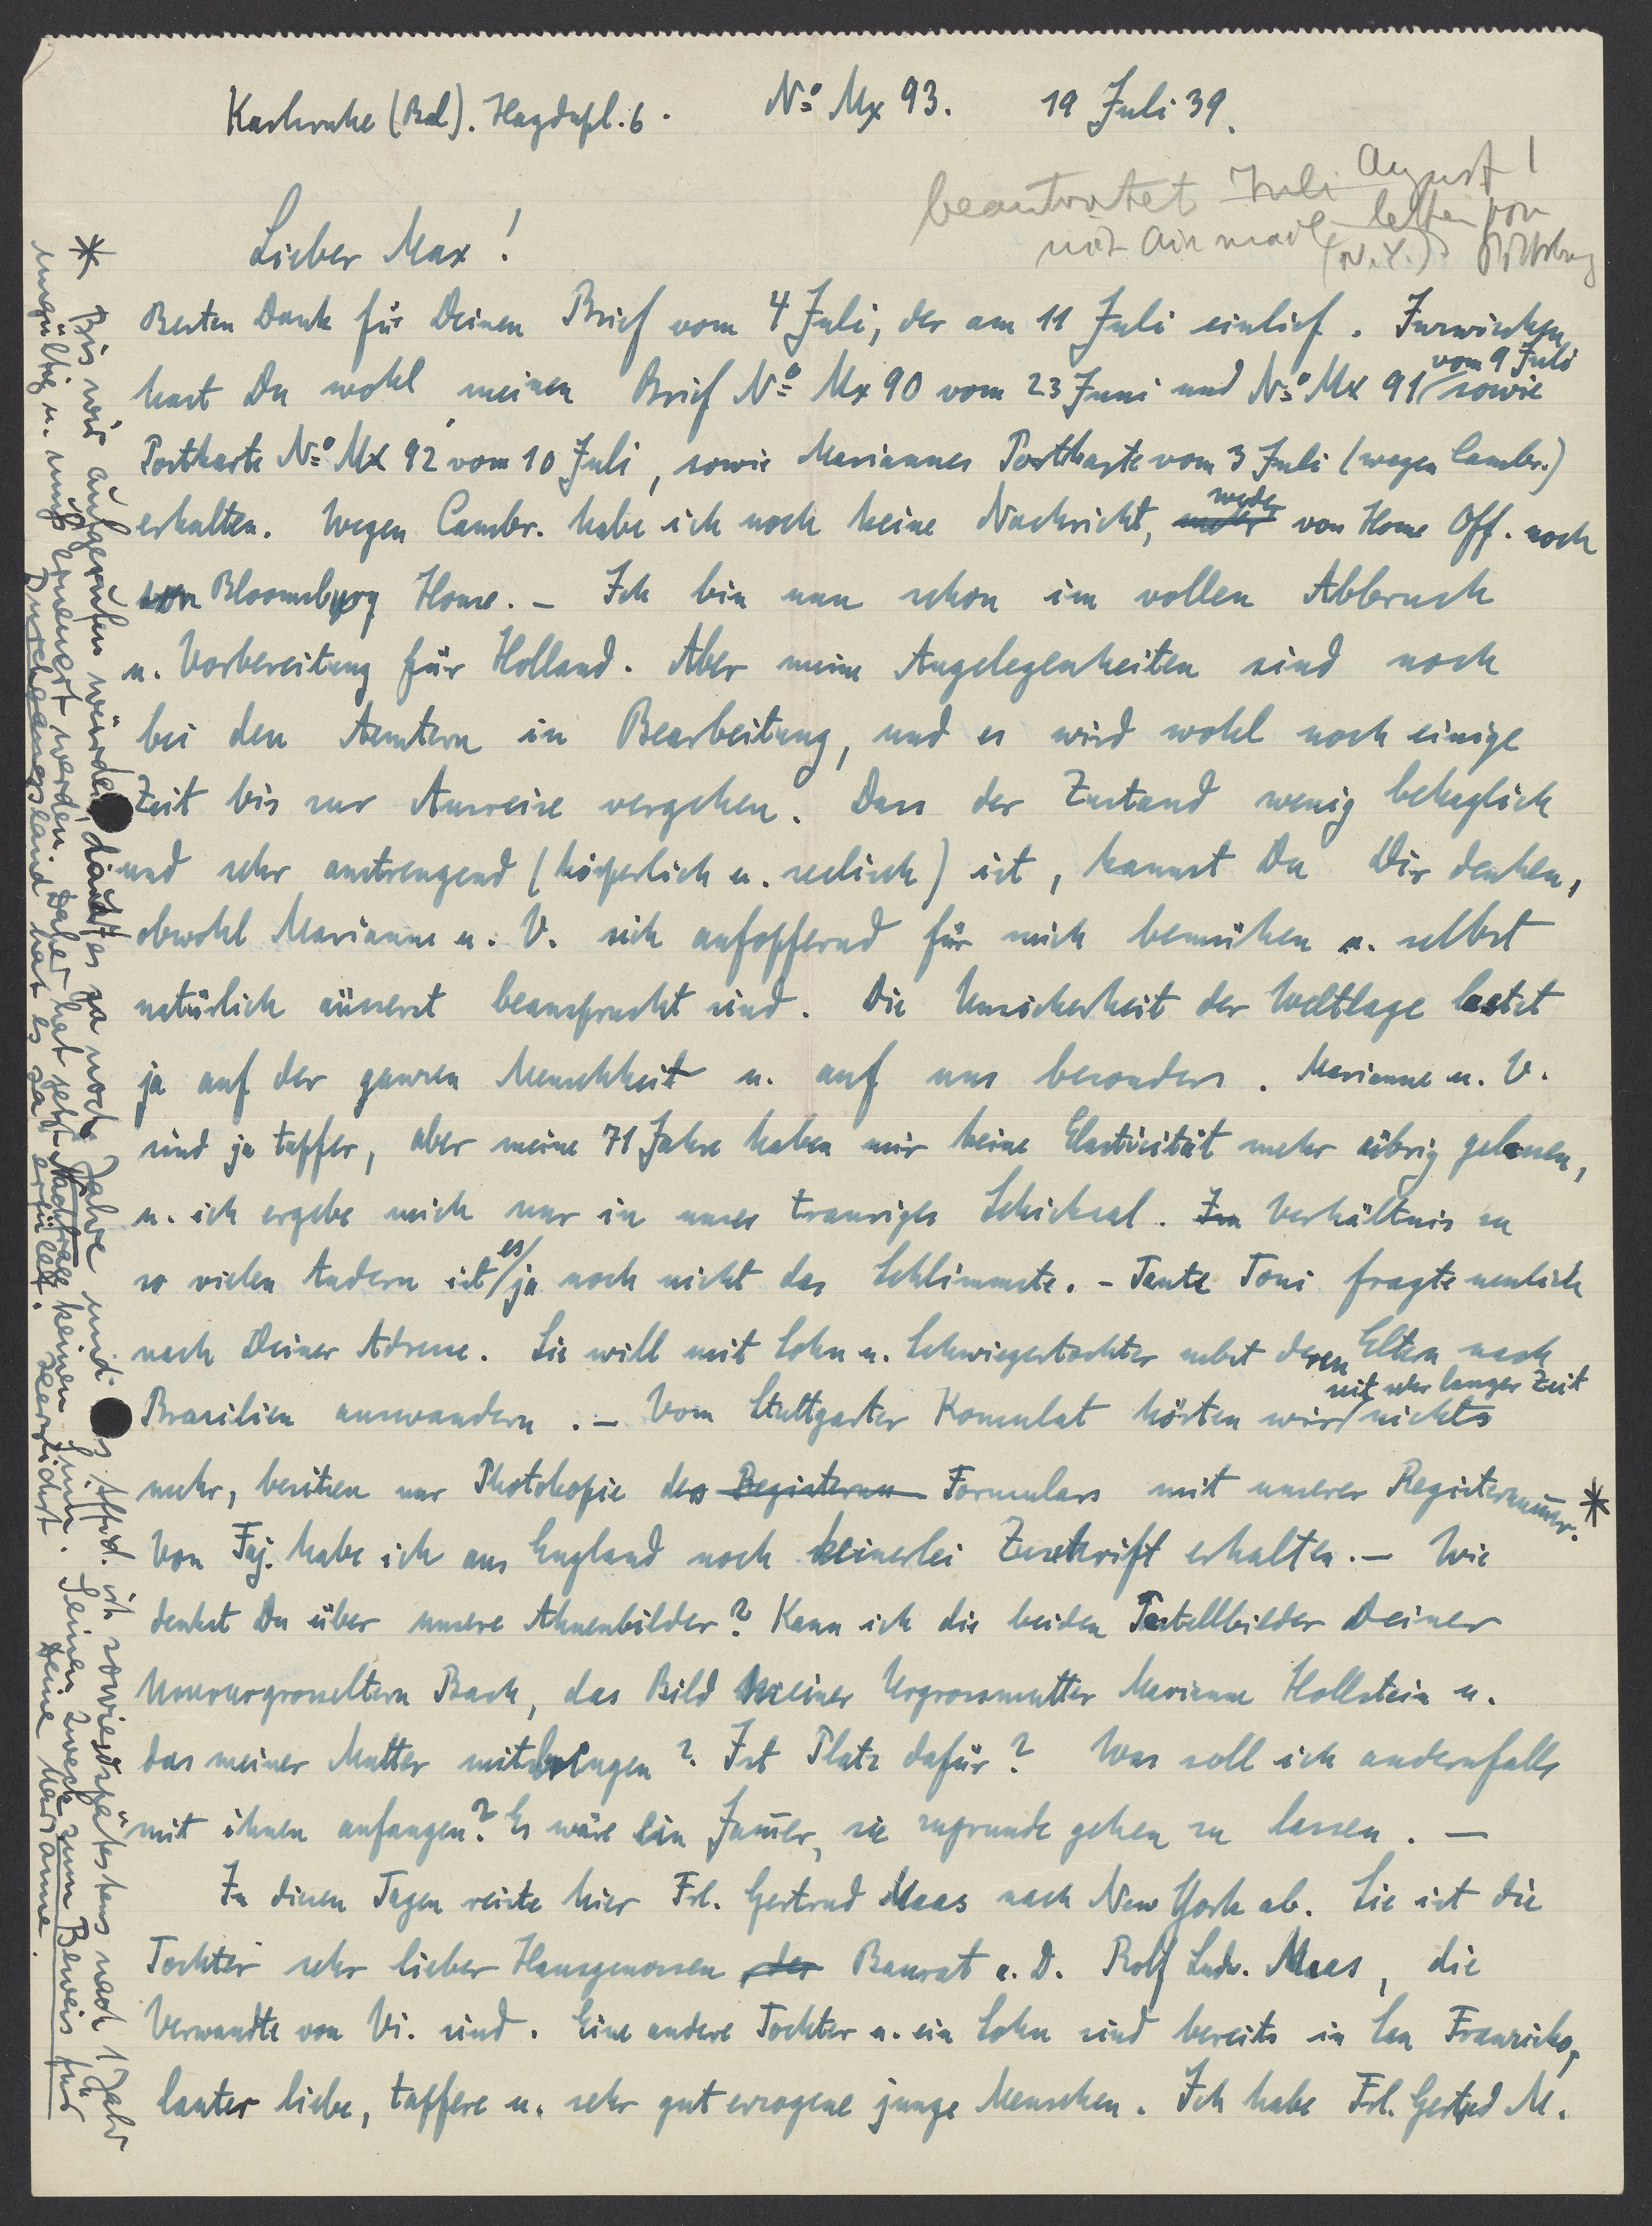 Karlsruhe (Bad). Haydnpl. 6. No Mx 93. 19 Juli 39.
beantwortet Juli August!
mit Air mail letter von
(N.Y.)
Lieber Max!
Besten Dank für Deinen Brief vom 4 Juli, der am 11 Juli einlief. Inzwischen
hast Du wohl meinen Brief No Mx 90 vom 23 Juni und No Mx 91 vom 9 Juli sowie
Postkarte No Mx 92 vom 10 Juli, sowie Mariannes Postkarte vom 3 Juli (wegen Cambr.)
erhalten. Wegen Cambr. habe ich noch keine Nachricht, weder von Home Off. noch
von Bloomsbury House. – Ich bin nun schon im vollen Abbruch
u. Vorbereitung für Holland. Aber meine Angelegenheiten sind noch
bei den Aemtern in Bearbeitung, und es wird wohl noch einige
Zeit bis zur Ausreise vergehen. Dass der Zustand wenig behaglich
und sehr anstrengend (körperlich u. seelisch) ist, kannst Du Dir denken,
obwohl Marianne u. V. sich aufopfernd für mich bemühen u. selbst
natürlich äusserst beansprucht sind. Die Unsicherheit der Weltlage lastet
ja auf der ganzen Menschheit u. auf uns besonders. Marianne u. V.
sind ja tapfer, aber meine 71 Jahre haben mir keine Elasticität mehr übrig gelassen,
u. ich ergebe mich nur in unser trauriges Schicksal. Im Verhältnis zu
so vielen Andern ist es ja noch nicht das Schlimmste. – Tante Toni fragte neulich
nach Deiner Adresse. Sie will mit Sohn u. Schwiegertochter nebst deren Eltern nach
Brasilien auswandern. – Vom Stuttgarter Konsulat hörten wir seit sehr langer Zeit nichts
mehr, besitzen nur Photokopie des Registernu Formulars mit unserer Registernum̄er. *
Von Faj. habe ich aus England noch keinerlei Zuschrift erhalten. – Wie
denkst Du über unsere Ahnenbilder? Kann ich die beiden Pastellbilder Deiner
Ururugrosseltern Bach, das Bild meiner Urgrossmutter Marianne Hollstein u.
das meiner Mutter mitbringen? Ist Platz dafür? Was soll ich andernfalls
mit ihnen anfangen? Es wäre ein Jam̄er, sie zugrunde gehen zu lassen. –
In diesen Tagen reiste hier Frl. Gertrud Maas nach New York ab. Sie ist die
Tochter sehr lieber Hausgenossen der Baurat a. D. Rolf Ludw. Maas, die
Verwandte von Vi. sind. Eine andere Tochter u. ein Sohn sind bereits in San Franzisko,
lauter liebe, tapfere u. sehr gut erzogene junge Menschen. Ich habe Frl. Gertrud M.
* Bis wir aufgerufen würden, dauert es ja noch Jahre und Affid. ist sowieso spätestens nach 1 Jahr
ungültig u. muß erneuert werden. Daher hat jetzt Nachfrage keinen Sinn. Seinen Zweck zum Beweis für
Durchgangsland hat es ja erfüllt. Herzlichst Deine Marianne.